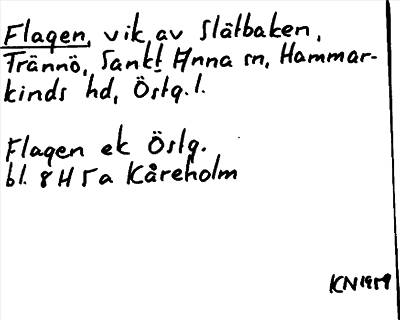 Flagen, vik av Slätbaken,
Trännö, Sankt Anna sn, Hammar-
kinds hd, Östg. l.
Flagen ek Östg.
bl. 8 H 5a Kåreholm
KN 1959